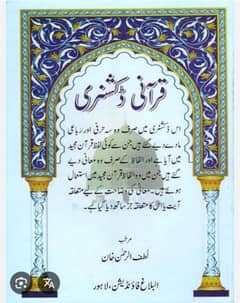 قرآنی ڈکشنری
اس ڈکشنری میں صرف وہ سہ حرفی اور رباعی
مادے دیے گئے ہیں جن سے کوئی لفظ قرآن مجید
میں آیا ہے اور الفاظ کے صرف وہ معانی دیے
گئے ہیں جن میں وہ الفاظ قرآن مجید میں استعمال
ہوئے ہیں۔ معانی کی وضاحت کے لیے متعلقہ
آیت یا اس کا متعلقہ جز ساتھ دیا گیا ہے۔
مرتب
لطف الرحمٰن خان
البلاغ فاؤنڈیشن، لاہور